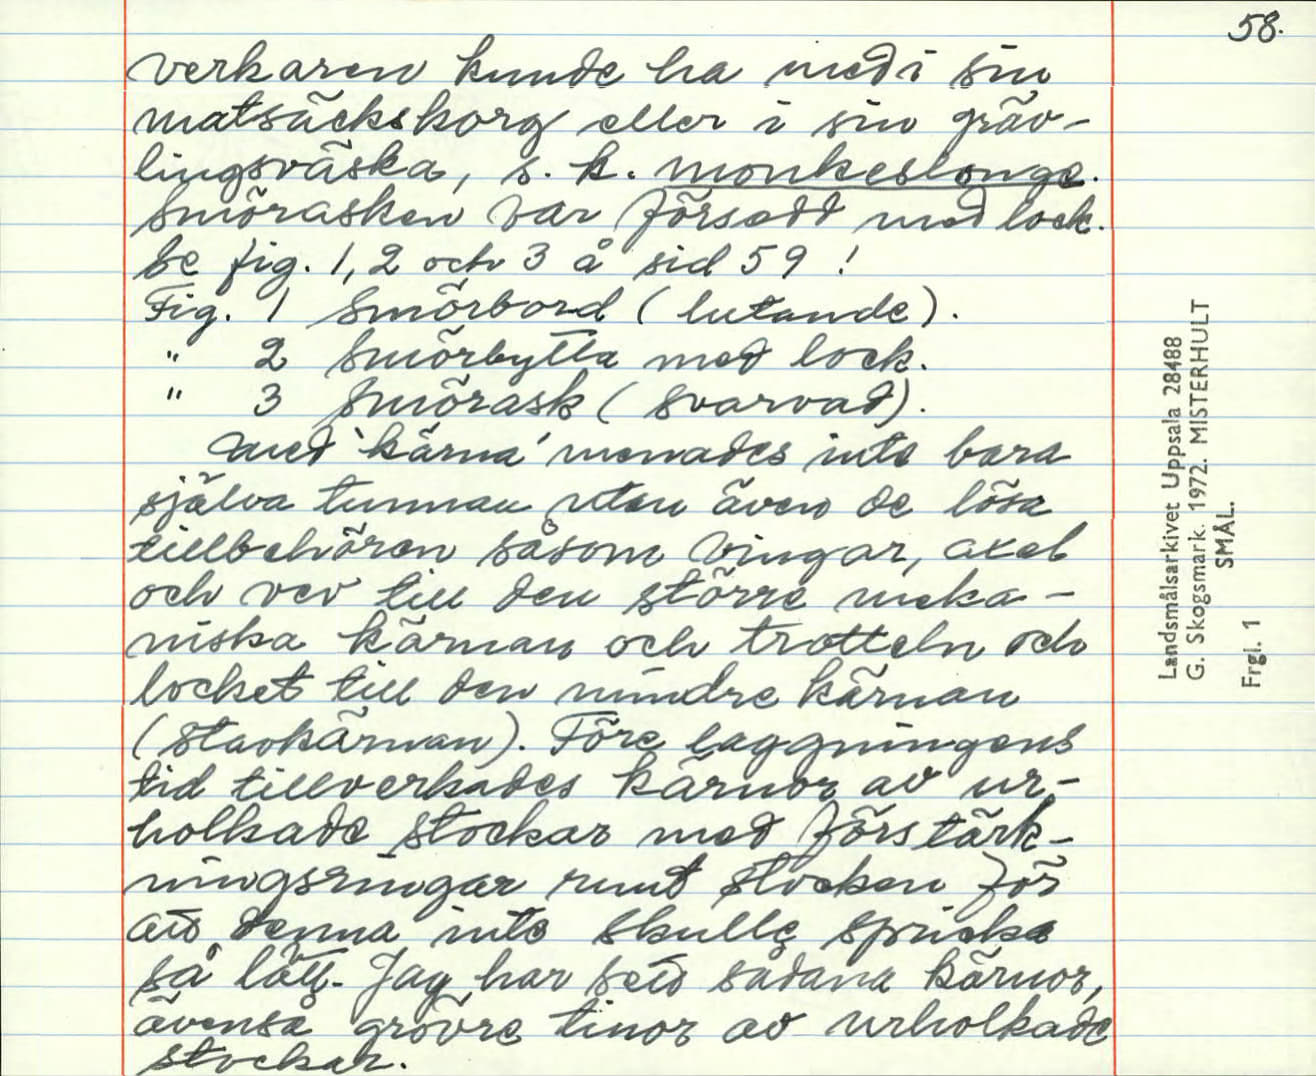 58.
verkaren kunde ha med i sin
matsäckskorg eller i sin gräv-
lingsväska, s. k. monkeslonge.
Smörasken var försedd med lock.
Se fig. 1, 2 och 3 å sid 59 !
Fig. 1 Smörbord (lutande).
" 2 Smörbytta med lock.
" 3 Smörask (svarvad).
Med 'kärna' menades inte bara
själva tunnan utan även de lösa
tillbehören såsom vingar, axel
och vev till den större meka-
niska kärnan och trotteln och
locket till den mindre kärnan
(stavkärnan). Före laggningens
tid tillverkades kärnor av ur-
holkade stockar med förstärk-
ningsringar runt stocken för
att denna inte skulle spricka
så lätt. Jag har sett sådana kärnor,
ävenså grövre tinor av urholkade
stockar.
Landsmålsarkivet Uppsala 28488
G. Skogsmark. 1972. MISTERHULT
SMÅL.
Frgl. 1